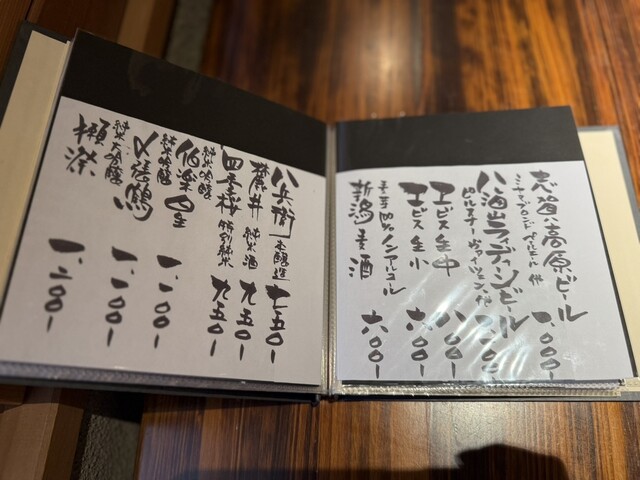 志賀高原ビール 一、〇〇〇ー
ミヤマブロンド ペールエール 他
八海山ライディーンビール 一、〇〇〇ー
ピルスナー ヴァイツェン 他
ヱビス生中 八〇〇ー
ヱビス生小 六〇〇ー
ノンアルコール
新潟麦酒 六〇〇ー
八兵衛 本醸造 七五〇ー
麓井 純米酒 九五〇ー
四季桜 特別純米 九五〇ー
純米吟醸
伯楽星 一、一〇〇ー
純米吟醸
〆張鶴 一、一〇〇ー
純米大吟醸
獺祭 一、二〇〇ー